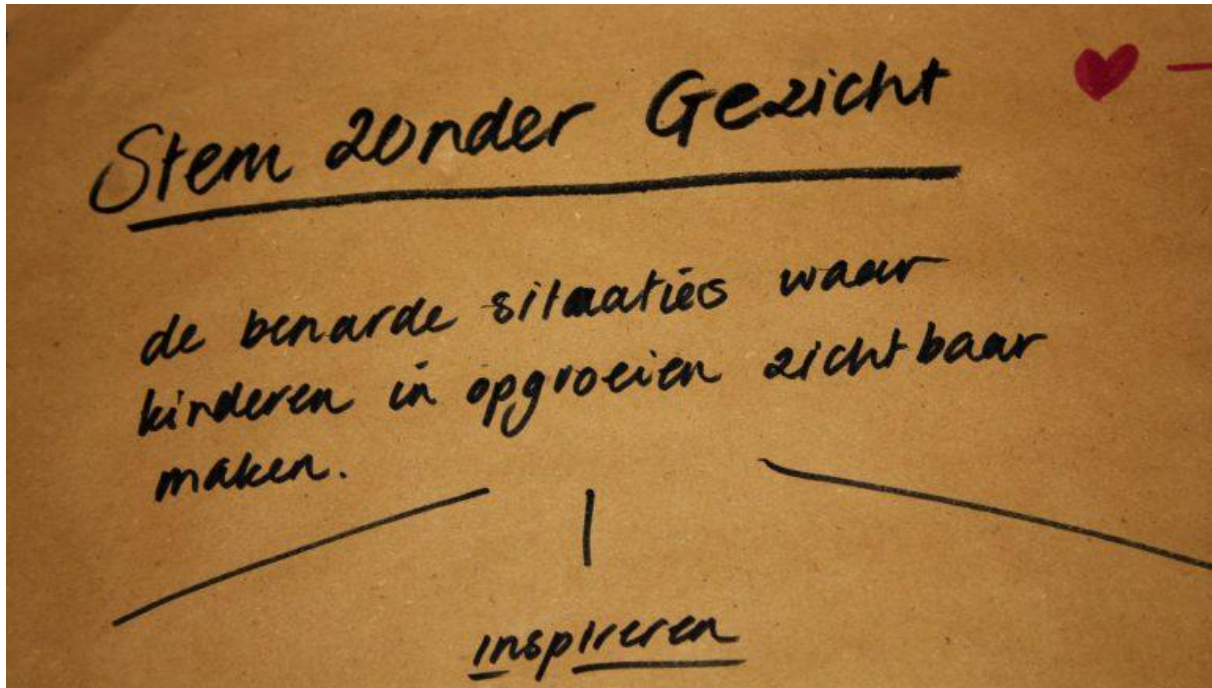 Stem zonder Gezicht
de benarde situaties waar
kinderen in opgroeien zichtbaar
maken.
inspireren